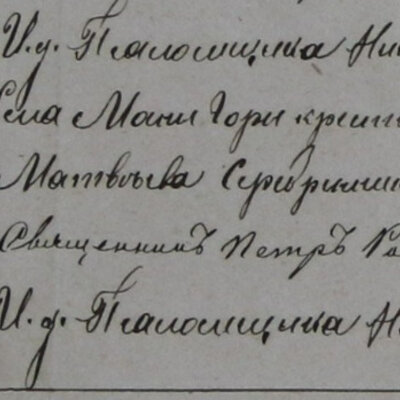 И.д. Псаломщика Ни
Села Малы Горы крест
Матвѣева Серебрян
Священникъ Петръ Ро
И.д. Псаломщика Н